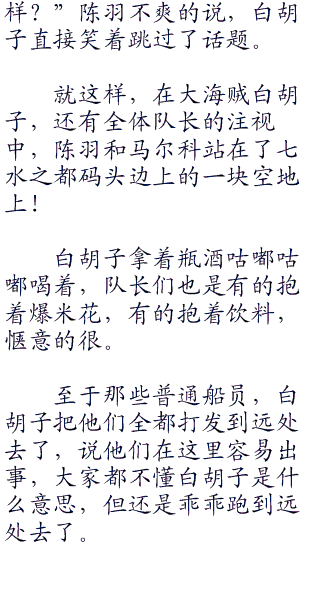 样？”陈羽不爽的说，白胡
子直接笑着跳过了话题。
就这样，在大海贼白胡
子，还有全体队长的注视
中，陈羽和马尔科站在了七
水之都码头边上的一块空地
上！
白胡子拿着瓶酒咕嘟咕
嘟喝着，队长们也是有的抱
着爆米花，有的抱着饮料，
惬意的很。
至于那些普通船员，白
胡子把他们全都打发到远处
去了，说他们在这里容易出
事，大家都不懂白胡子是什
么意思，但还是乖乖跑到远
处去了。